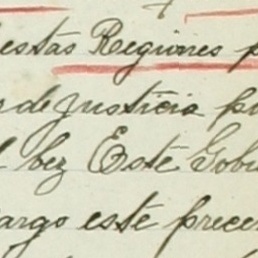 estas Regiones p
de Justicia pu
l bez Este Gobi
argo este prece